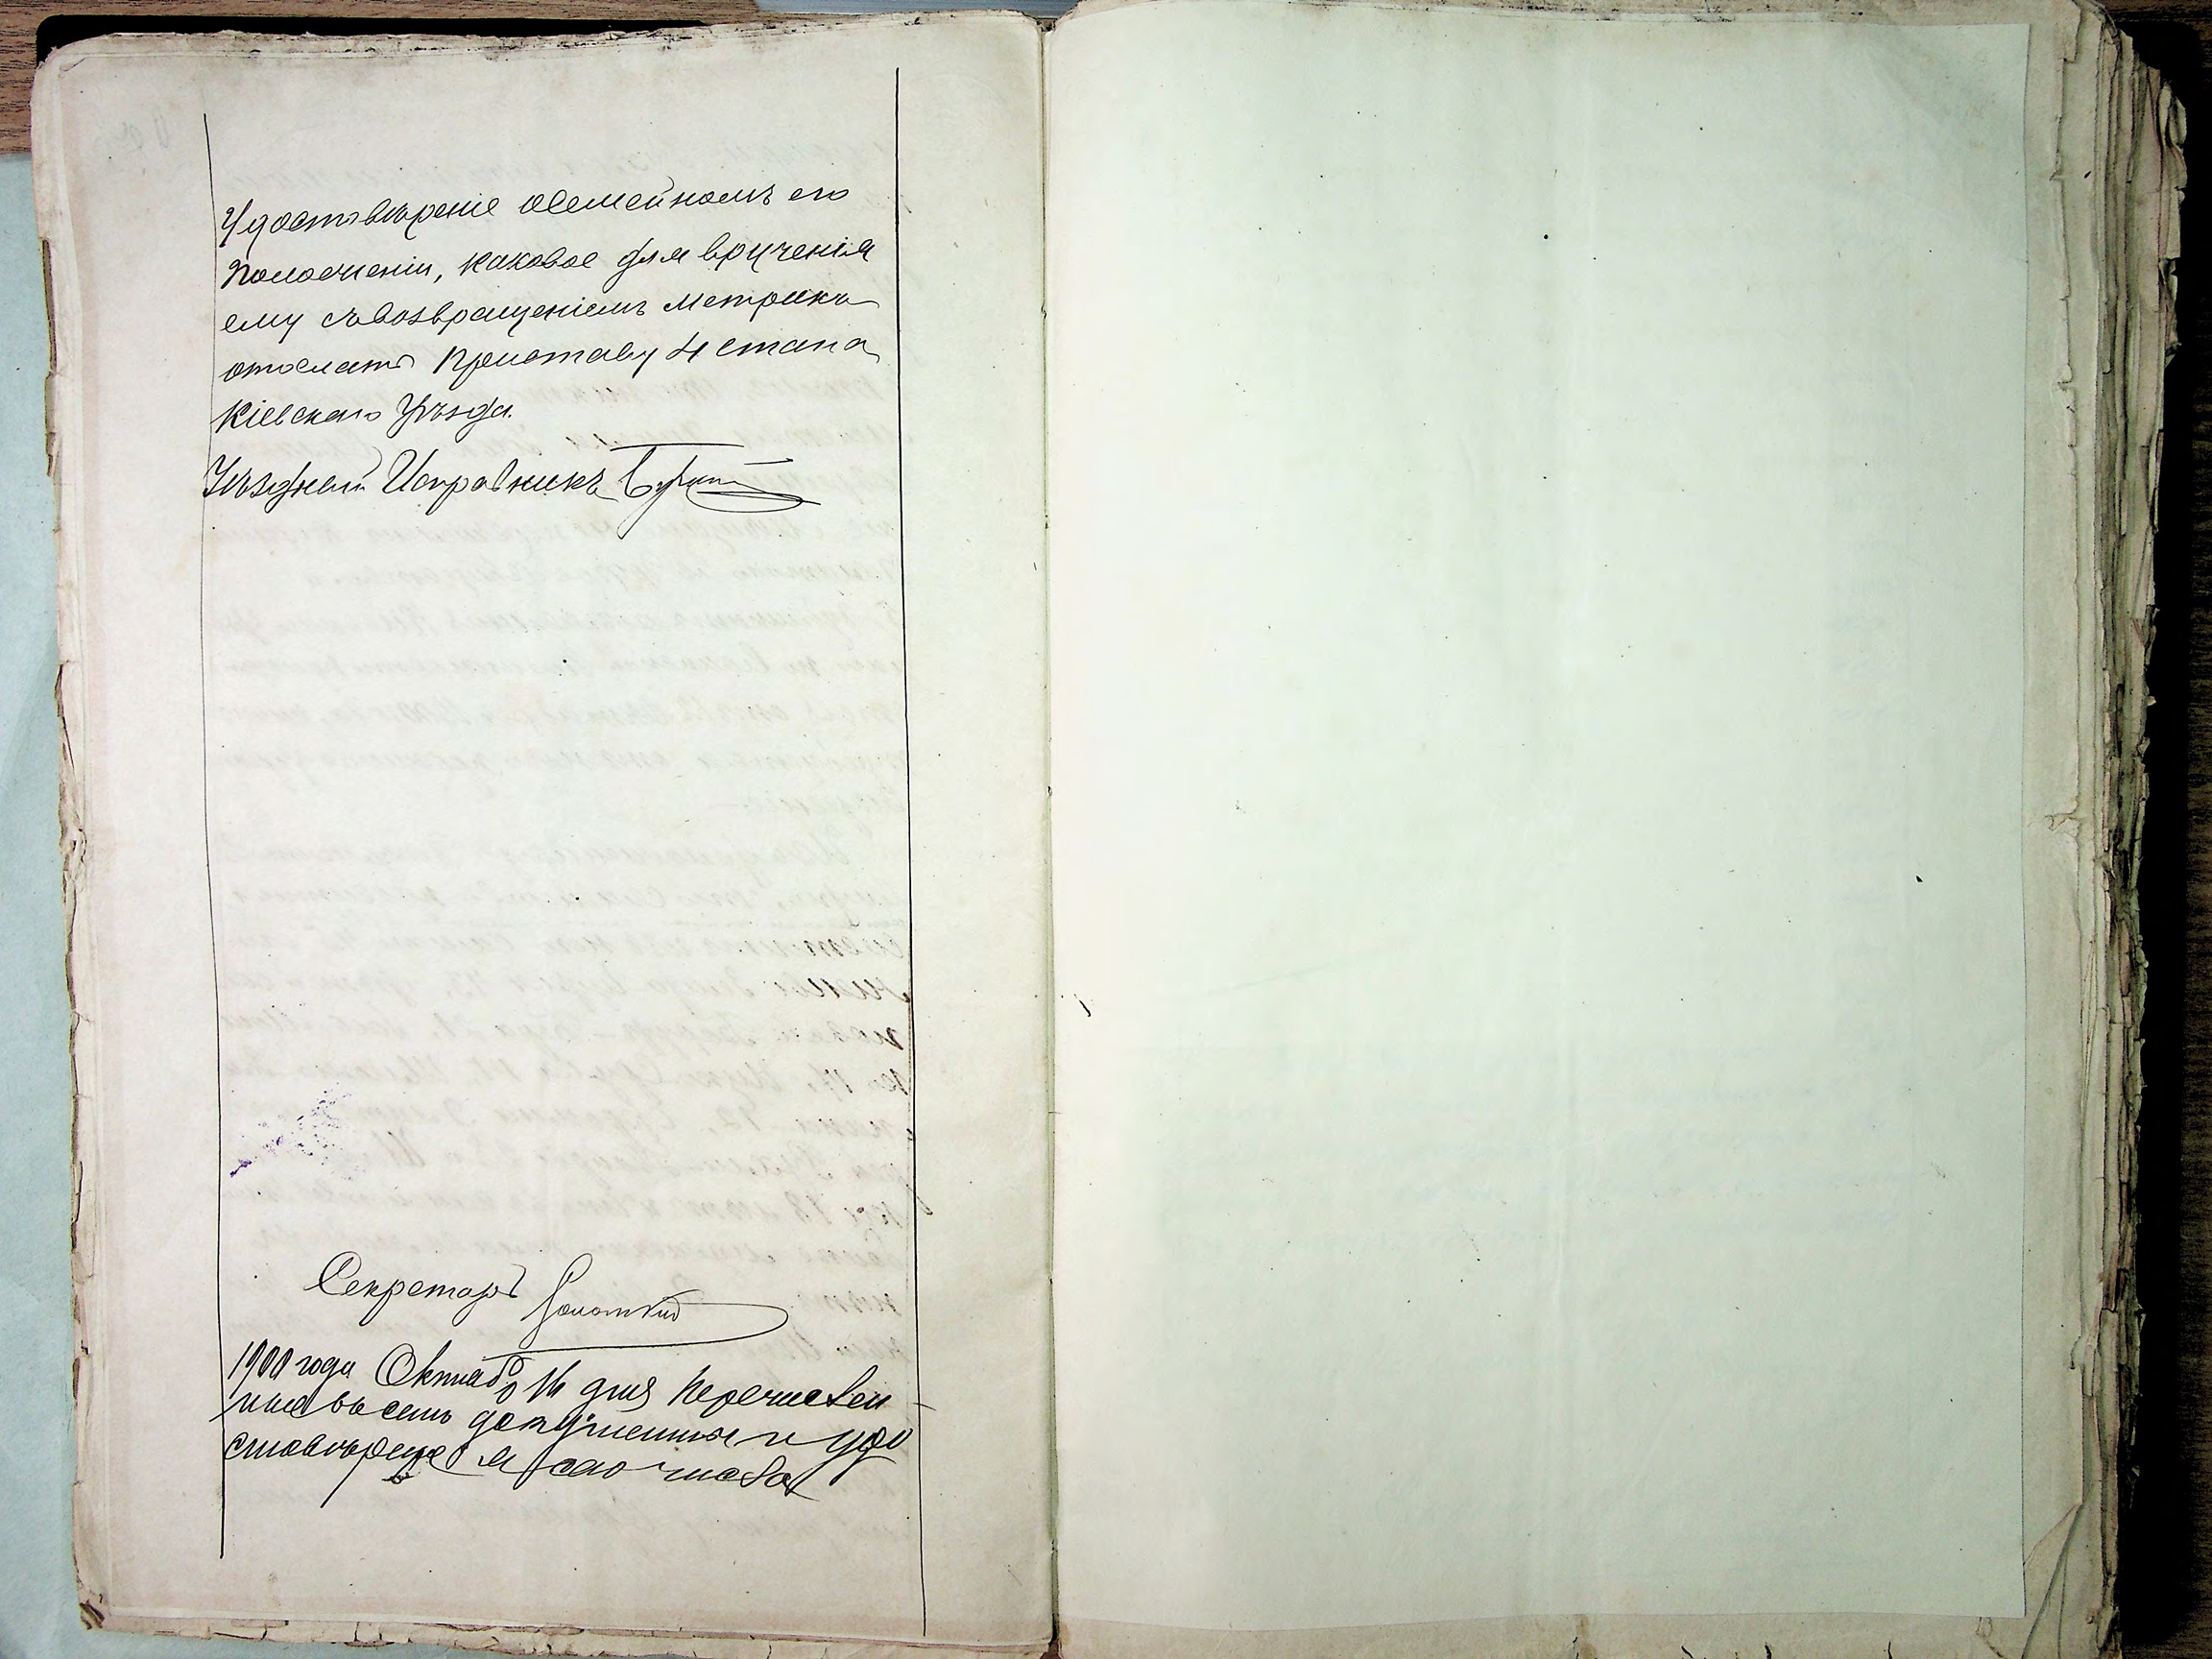 Удостовѣреніе осемейномъ его
положеніи, каковое для врученія
ему съвозвращеніемъ метрикъ
отослать Приставу 4 стана
Кіевскаго Уѣзда.
Уѣздный Исправникъ
Секретарь
1900 года Октяб 16 дня перечислен-
ные восемь документы и удо
стовѣреніе